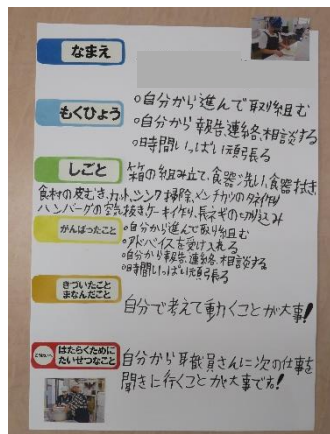 なまえ
もくひょう
○自分から進んで取り組む
○自分から報告、連絡、相談する
○時間いっぱい頑張る
しごと
箱の組み立て、食器洗い、食器拭き、
食材の皮むき、カット、シンク掃除、メンチカツのタネ作り
ハンバーグの空気抜き、ケーキ作り、長ネギの切り込み
がんばったこと
○自分から進んで取り組む
○アドバイスを受け入れる
○自分から報告、連絡、相談する
○時間いっぱい頑張る
きづいたこと
まなんだこと
自分で考えて動くことが大事!
はたらくために
たいせつなこと
自分から職員さんに次の仕事を
聞きに行くことが大事です!